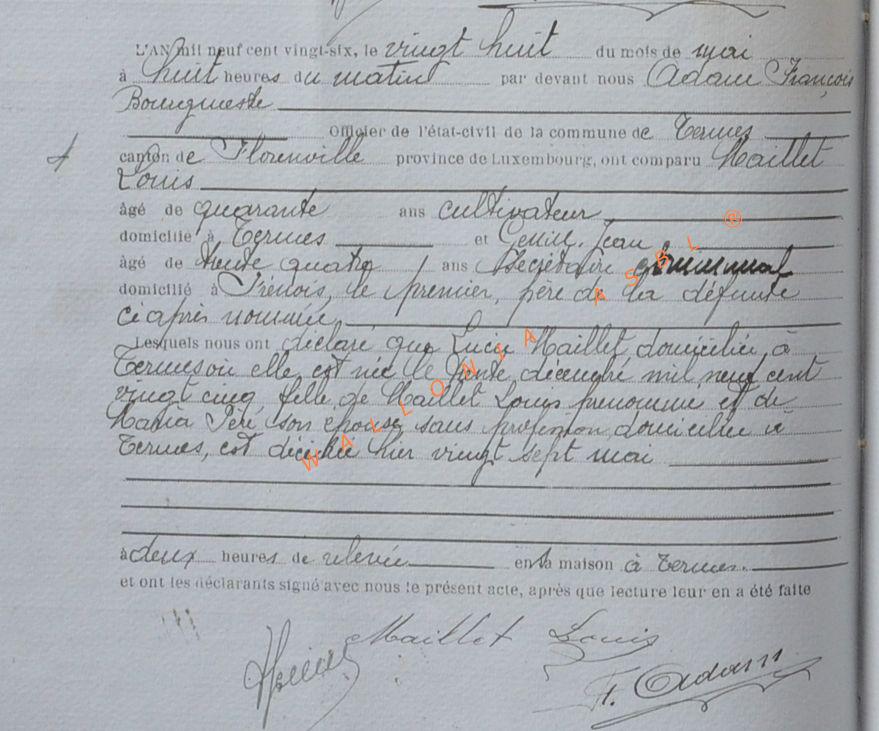 L'AN mil neuf cent vingt-six, le vingt huit du mois de mai
à huit heures du matin par devant nous Adam François
Bourgmestre
Officier de l'état-civil de la commune de Termes
canton de Florenville province de Luxembourg, ont comparu Maillet
Louis
âgé de quarante ans cultivateur
domicilié à Termes et Jean
âgé de trente quatre ans Secrétaire communal
domicilié à Frénois, le premier, père de la défunte
ci après nommée
Lesquels nous ont déclaré que Lucie Maillet, domiciliée à
Termes où elle est née le trente décembre mil neuf cent
vingt cinq fille de Maillet Louis prénommé et de
Maria son épouse, sans profession domiciliée à
Termes, est décédée hier vingt sept mai
à deux heures de relevée en sa maison à Termes.
et ont les déclarants signé avec nous le présent acte, après que lecture leur en a été faite
Maillet Louis
F. Adam
WALLONIA ASBL ®